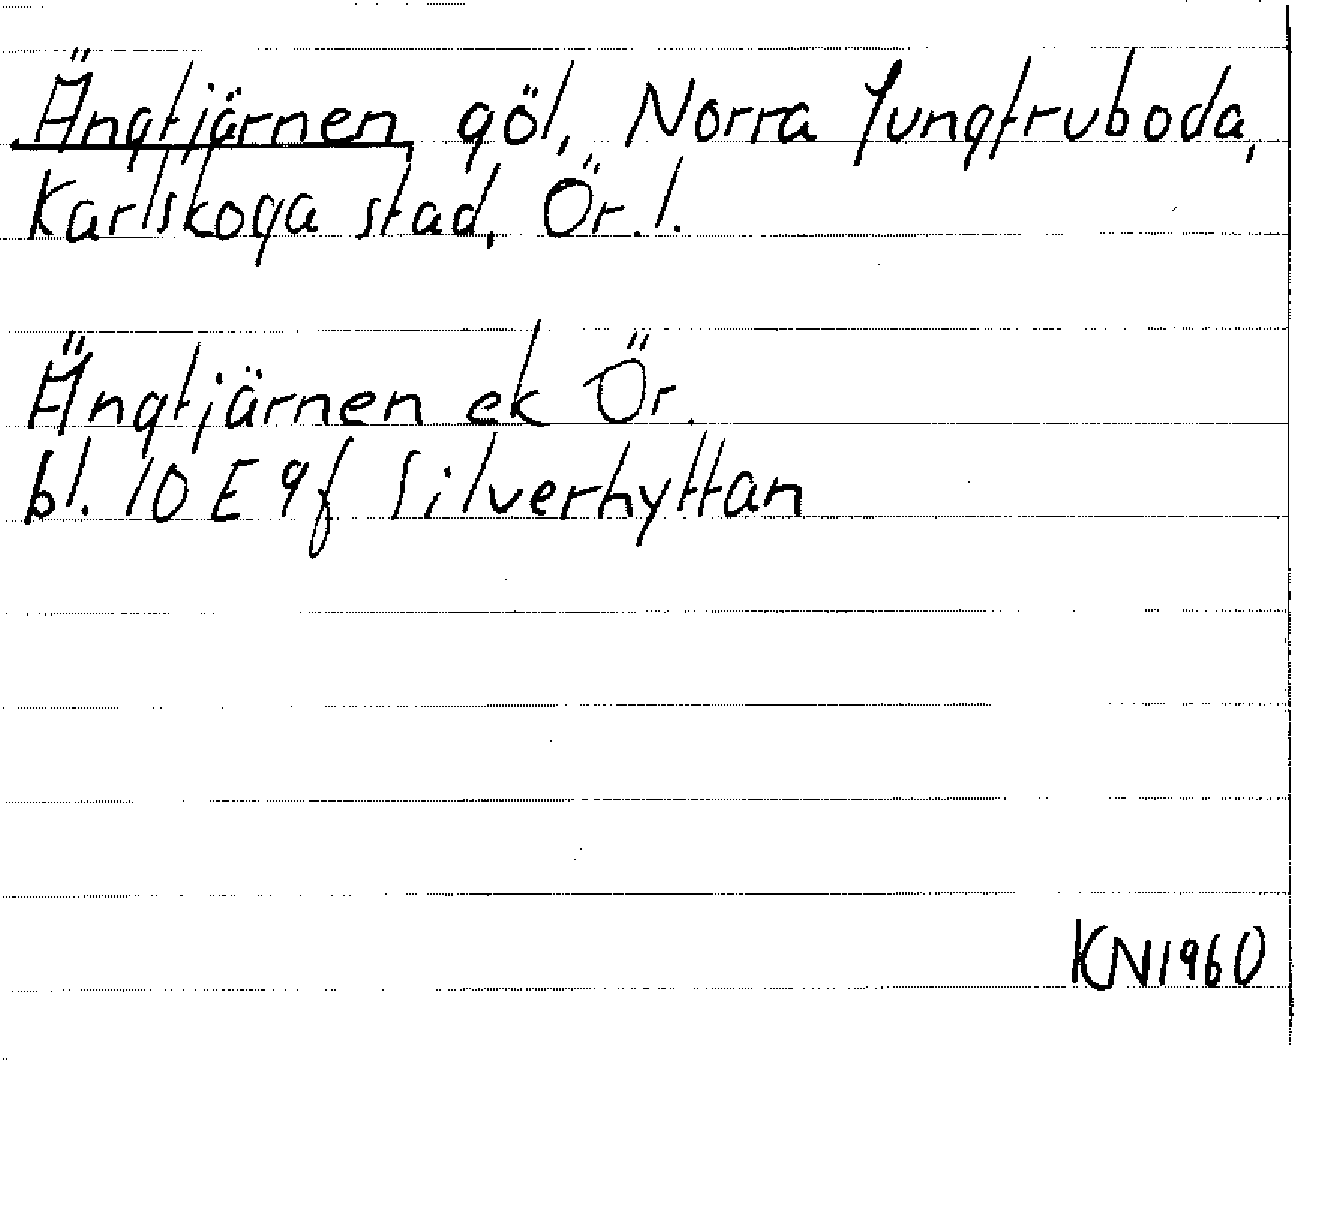 Ängtjärnen göl, Norra Jungfruboda,
Karlskoga stad, Ör. l.
Ängtjärnen ek Ör.
bl. 10 E 9f Silverhyttan
KN1960